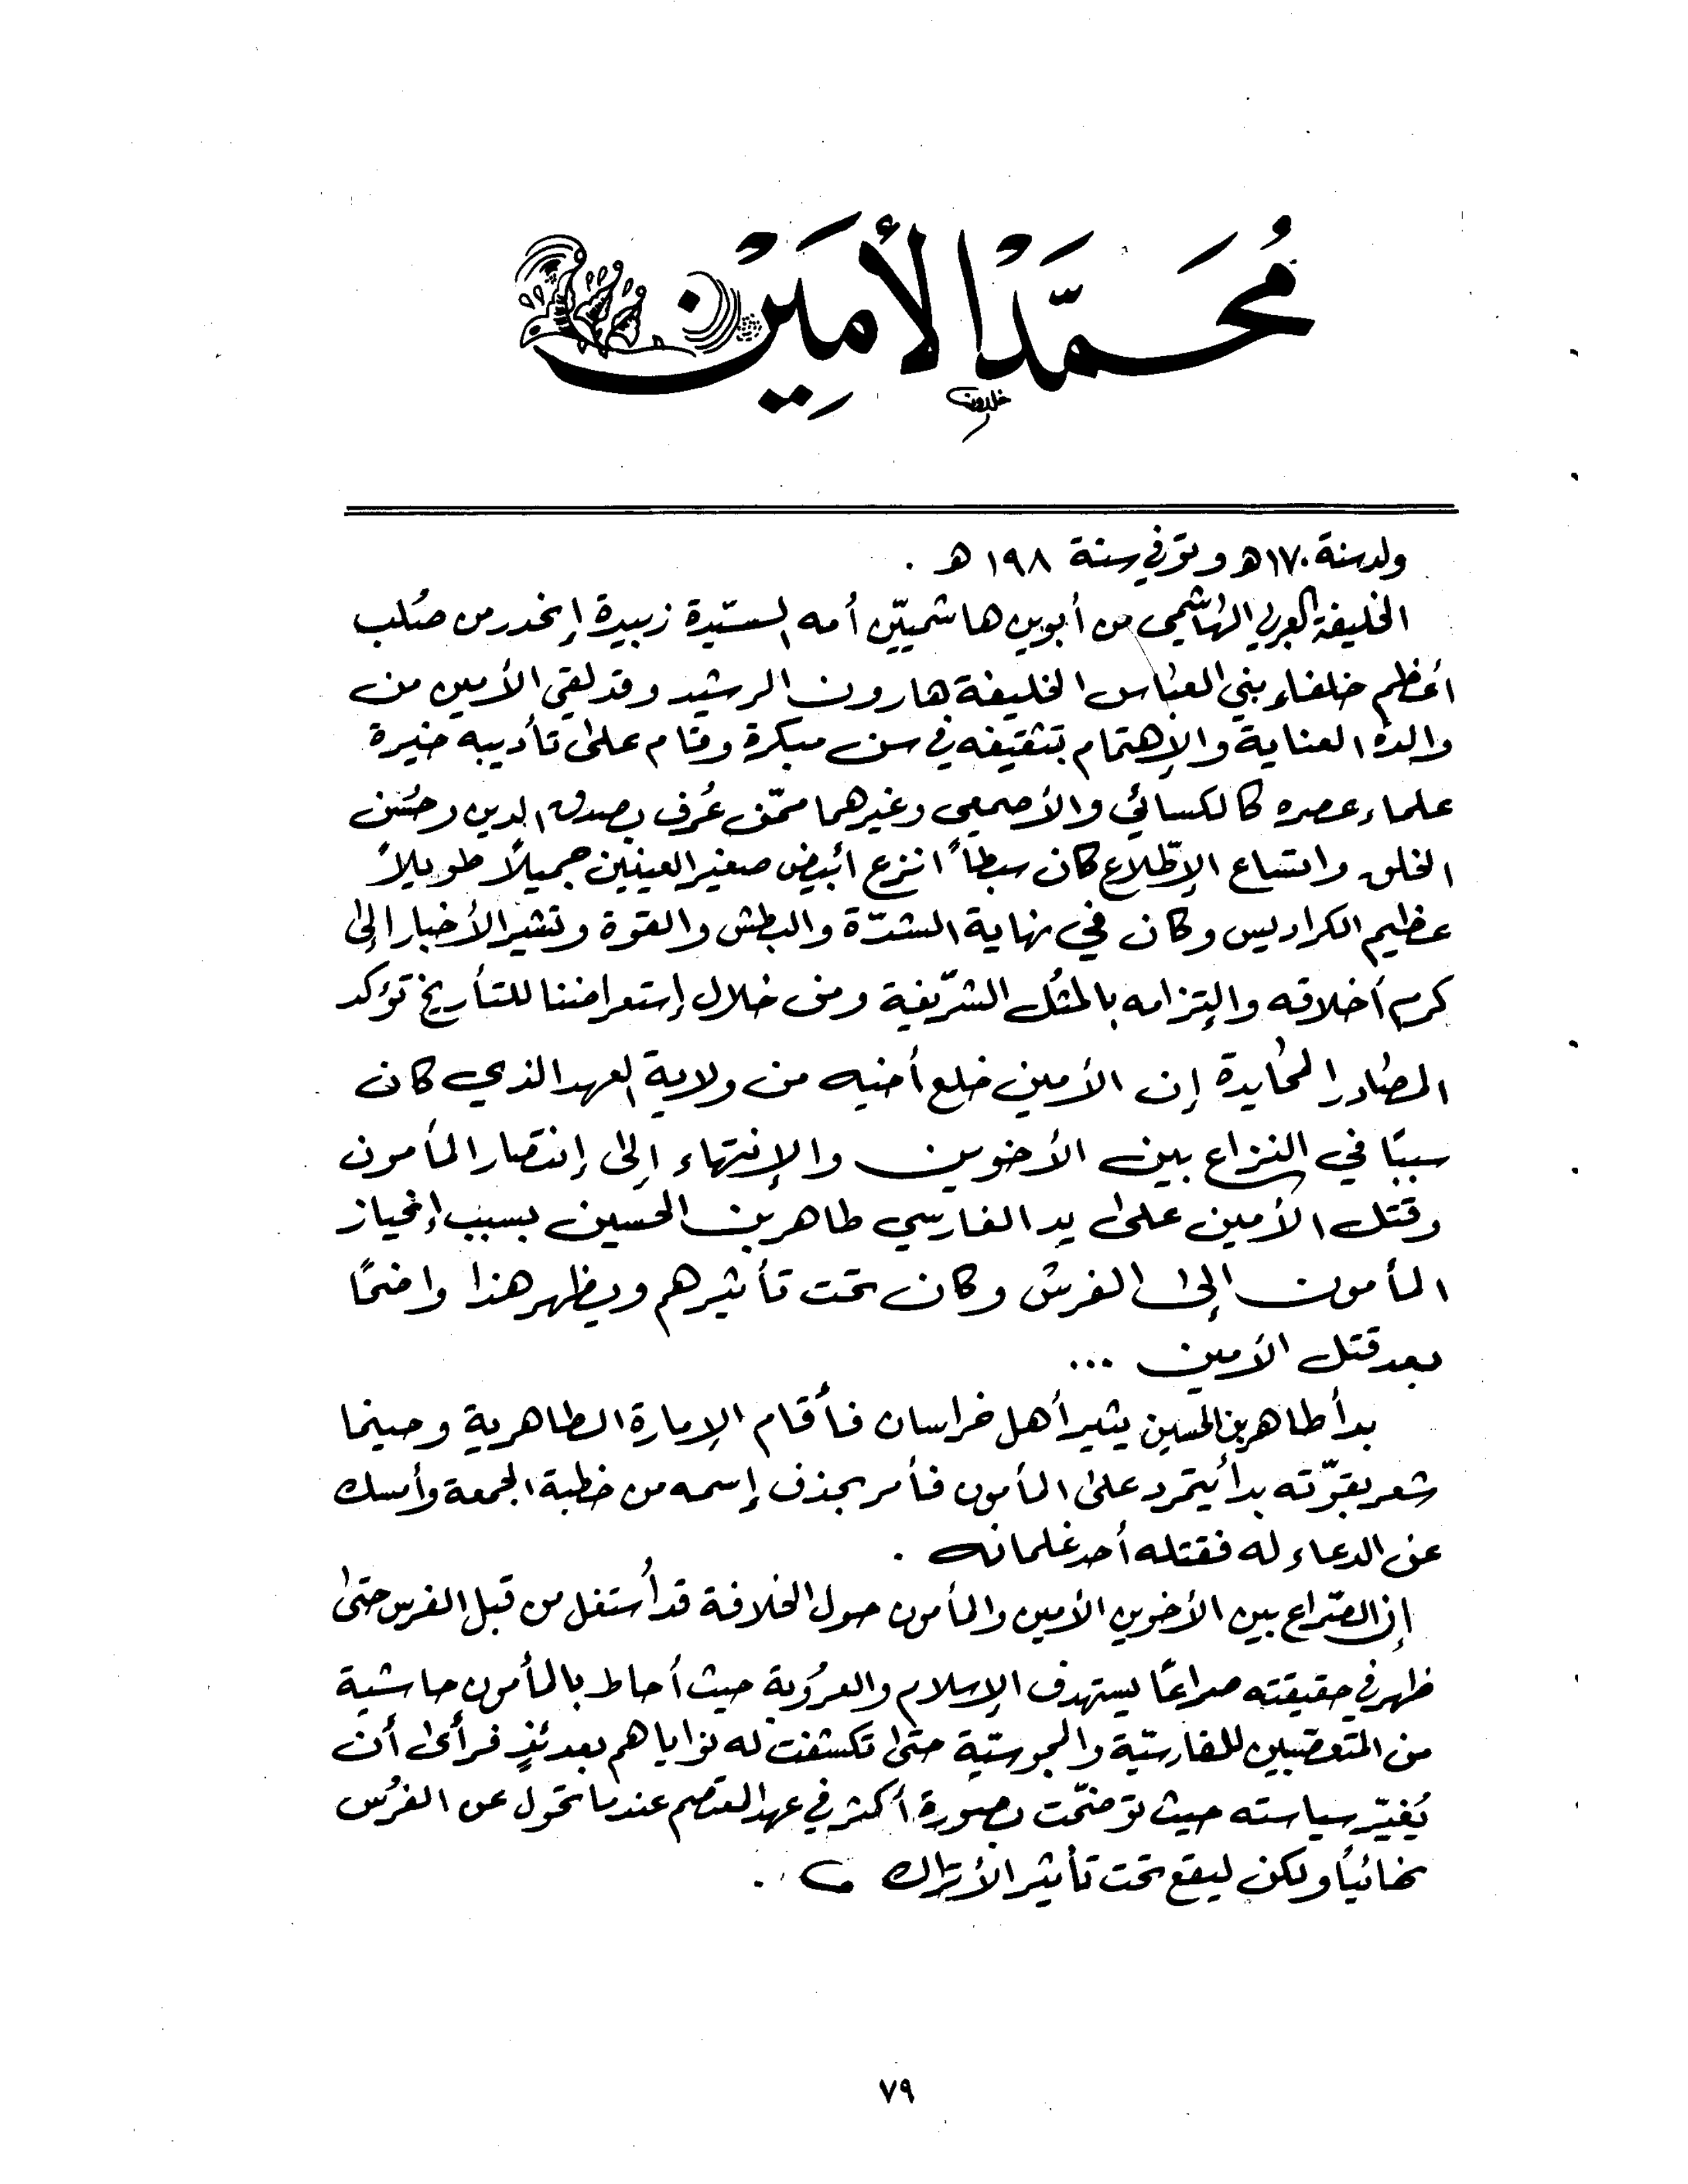 مُحَمَّدْ الأَمِيَنْ
خلدون
ولد سنة ١٧٠ هـ وتوفي سنة ١٩٨ هـ .
الخليفة العربي الهاشمي من أبوين هاشميّين أمه السيّدة زبيدة إنحدر من صُلب
أعظم خلفاء بني العباس الخليفة هارون الرشيد وقد لقي الأمين من
والده العناية والإهتمام بتثقيفه في سن مبكرة وقام على تأديبه خيرة
علماء عصره كالكسائي والأصمعي وغيرهما ممّن عُرف بصدق الدين وحُسن
الخلق واتساع الإطّلاع كان سبطاً انزع أبيض صغير العينين جميلاً طويلاً
عظيم الكراديس وكان في نهاية الشدّة والبطش والقوة وتشير الأخبار إلى
كرم أخلاقه وإلتزامه بالمثُل الشرّيفة ومن خلال إستعراضنا للتأريخ تؤكد
المصادر المحايدة إن الأمين خلع أخيه من ولاية العهد الذي كان
سببًا في النزاع بين الأخوين والإنتهاء إلى إنتصار المأمون
وقتل الأمين على يد الفارسي طاهر بن الحسين بسبب إنحياز
المأمون إلى الفرس وكان تحت تأثيرهم ويظهر هذا واضحًا
بعد قتل الأمين ...
بدأ طاهر بن الحسين يثير أهل خراسان فأقام الإمارة الطاهرية وحينما
شعر بقوّته بدأ يتمرد على المأمون فأمر بحذف إسمه من خطبة الجمعة وأمسك
عن الدعاء له فقتله أحد غلمانه .
إن الصّراع بين الأخوين الأمين والمأمون حول الخلافة قد أُستغل من قبل الفرس حتى
ظهر في حقيقته صراعًا يستهدف الإسلام والعروُبة حيث أحاط بالمأمون حاشية
من المتعصّبين للفارسيّة والمجوسيّة حتى تكشفت له نواياهم بعدئذٍ فرأى أن
يُغيّر سياسته حيث توضحّت بصورة أكثر في عهد المعتصم عندما تحول عن الفرُس
نهائياً ولكن ليقع تحت تأثير الأتراك .
٧٩